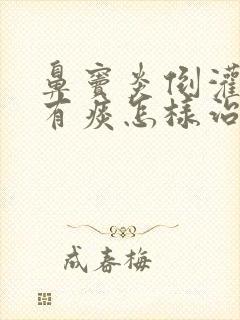 鼻窦炎倒灌
有痰怎样治
成春梅